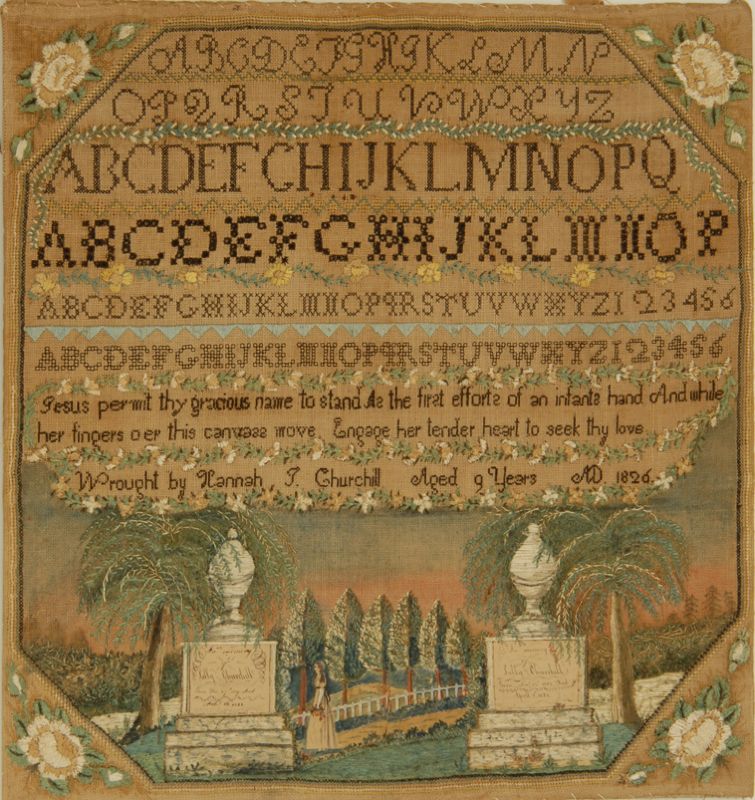 ABCDEFGHIKLMN
OPQRSTUVWXYZ
ABCDEFGHIJKLMNOPQ
ABCDEFGHIJKLMNOP
ABCDEFGHIJKLMNOPQRSTUVWXYZ123456
ABCDEFGHIJKLMNOPQRSTUVWXYZ123456
Jesus permit thy gracious name to stand As the first efforts of an infants hand And while
her fingers oer this canvass move Engage her tender heart to seek thy love
Wrought by Hannah J. Churchill Aged 9 Years AD. 1826.
Churchill
Churchill